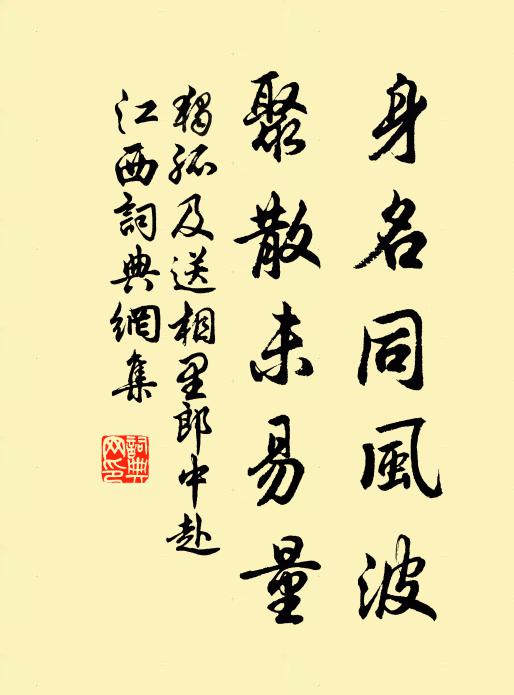 身名同風波
聚散未易量
獨孤及送相里郎中赴
江西詞典網集
詞典网印